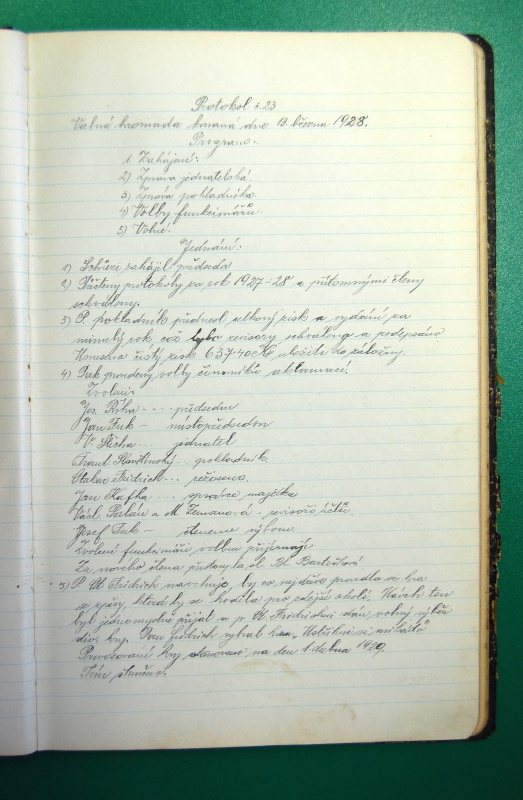 Protokol č. 23
Valná hromada konaná dne 13. března 1928.
Program:
1. Zahájení:
2) Zpráva jednatelská.
3) Zpráva pokladníka.
4) Volby funkcionářů.
5) Volné.
Jednání:
1) Schůzi zahájil předseda
2) Přečteny protokoly za rok 1927-28 a přítomnými členy
schváleny.
3) P. pokladník přednesl celkový zisk a vydání za
minulý rok, což bylo revisory schváleno a podepsáno
Usneseno čistý zisk 637.40 Kč uložiti do záložny.
4) Pak provedeny volby činovníků aklamací.
Zvoleni:
Jos. Říha - - - předsedou
Jan Fuk - místopředsedou
V. Šťcha ... jednatel
Frant. ... pokladník.
Otakar Fridrich ... režiserem.
Jan Kafka ... správce majetku
Václ. a M. Zemanová - revisoři účtů.
Josef Fuk - členem výboru.
Zvolení funkcionáři volbu přijímají.
Za nového člena přistoupila sl. Bl.
5) P. Ot. Fridrich navrhuje, by co nejdříve provedla se hra
se zpěvy, která by se hodila pro zdejší okolí. Návrh ten
byl jednomyslně přijat a p. Ot. Fridrichovi dán volný výběr
div. hry. Pan Fridrich vybral hru,
Provozování hry stanoveno na den 1. dubna
Tím skončeno.